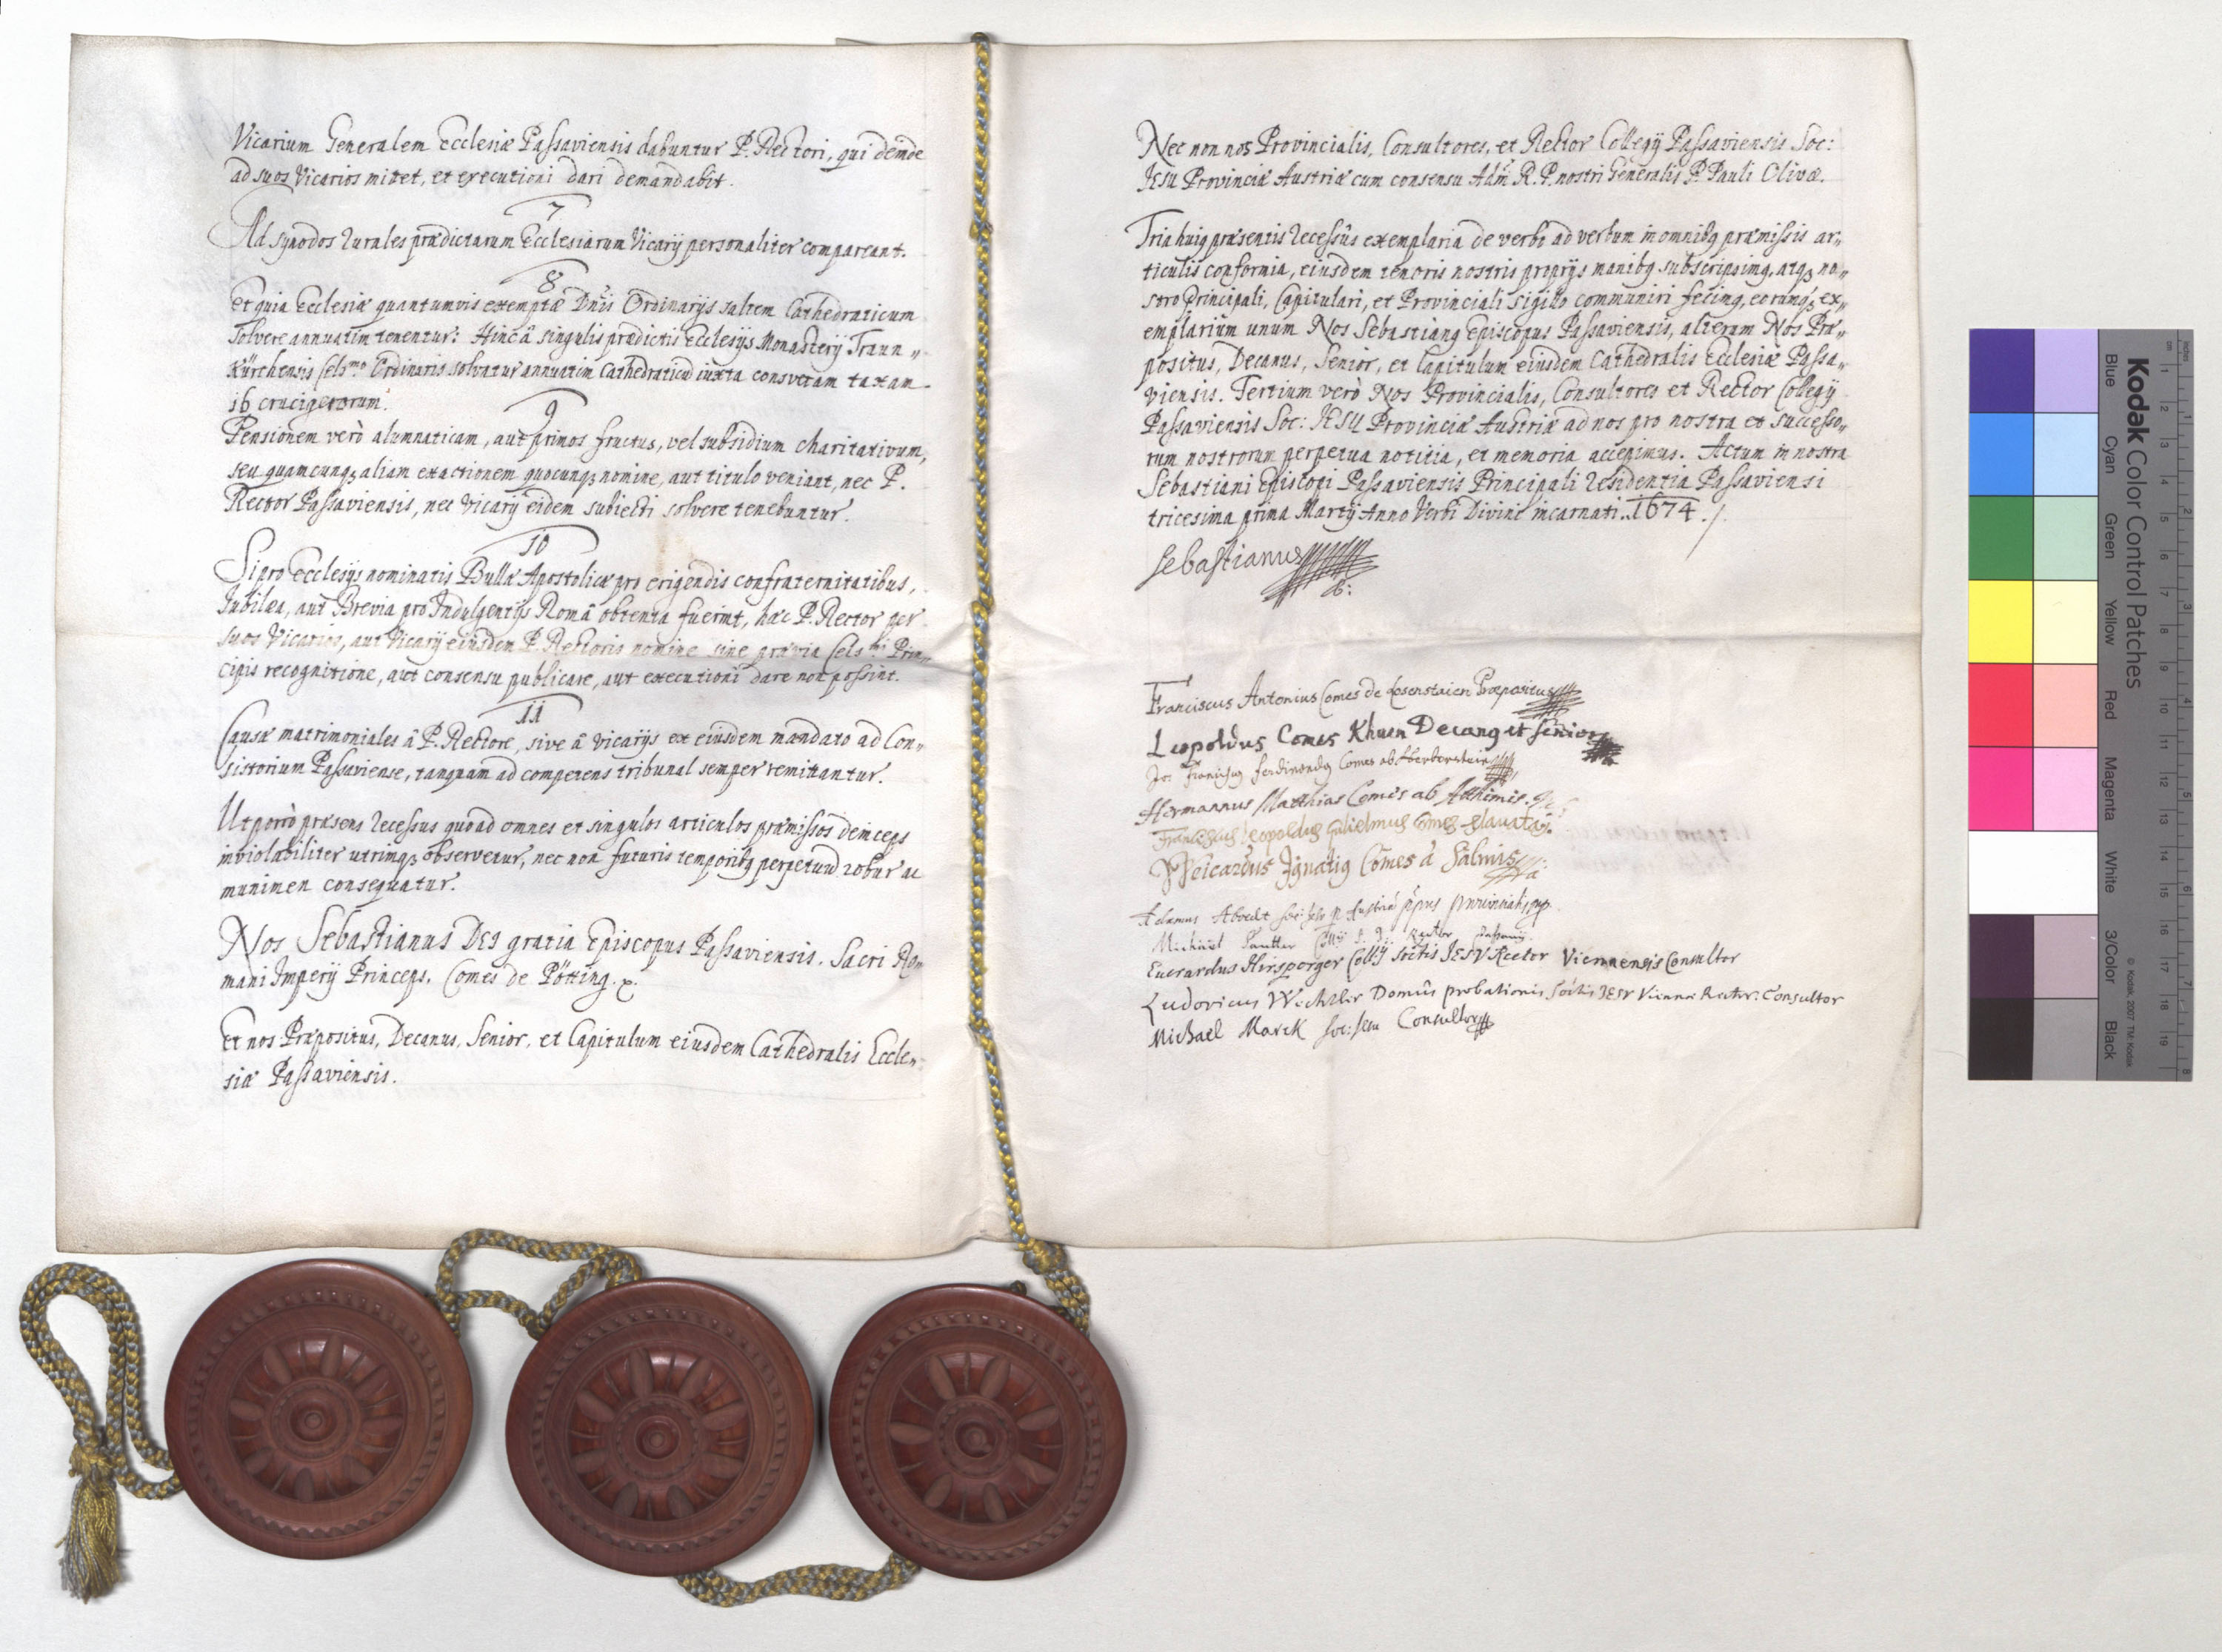 Vicarium Generalem Ecclesiæ Passaviensis dabuntur P. Rectori, qui deinde
ad suos Vicarios mittet, et executioni dari demandabit.
7
Ad synodos rurales prædictarum Ecclesiarum Vicarij personaliter compareant.
8
Et quia Ecclesiæ quantumvis exemptæ Dnis Ordinarijs saltem Cathedraticum
solvere annuatim tenentur: Hinc â singulis prædictis Ecclesijs Monasterij Traun„
Kürchensis Cels.mo Ordinario solvatur annuatim Cathedraticū iuxta consvetam taxam
16 crucigerorum.
9
Pensionem verò alumnaticam, aut primos fructus, vel subsidium charitativum,
seu quamcunqꝫ aliam exactionem quocunqꝫ nomine, aut titulo veniant, nec P.
Rector Passaviensis, nec Vicarij eidem subiecti solvere tenebuntur.
10
Si pro Ecclesijs nominatis Bullæ Apostolicæ pro erigendis confraternitatibus,
Jubilæa, aut Brevia pro Indulgentijs Româ obtenta fuerint, hæc P. Rector per
suos Vicarios, aut Vicarij eiusdem P. Rectoris nomine sine prævia Cels.mi Prin„
cipis recognitione, aut consensu publicare, aut executioni dare non possint.
11
Causæ matrimoniales â P. Rectore, sive â vicarijs ex eiusdem mandato ad Con„
sistorium Passaviense, tanquam ad competens tribunal semper remittantur.
Ut porrò præsens recessus quoad omnes et singulos articulos præmissos deinceps
inviolabiliter utrimqꝫ observetur, nec non futuris temporibꝯ perpetuū robur ac
munimen consequatur.
Nos Sebastianus DEI gratia Episcopus Passaviensis, Sacri Ro„
mani Imperij Princeps, Comes de Pötting.
Et nos Præpositus, Decanus, Senior, et Capitulum eiusdem Cathedralis Eccle„
siæ Passaviensis.
Nec non nos Provincialis, Consultores, et Rector Collegij Passaviensis Soc:
JEsu Provinciæ Austriæ cum consensu Adm R. P. nostri Generalis P. Pauli Olivæ.
Tria huiꝯ præsentis recessûs exemplaria de verbo ad verbum in omnibꝯ præmissis ar„
ticulis conformia, eiusdem tenoris nostris proprijs manibꝯ subscripsimꝯ, atqꝫ no„
stro Principali, Capitulari, et Provinciali sigillo communiri fecimꝯ, eorumqꝫ ex„
emplarium unum Nos Sebastianꝯ Episcopus Passaviensis, alterum Nos Præ„
positus, Decanus, Senior, et Capitulum eiusdem Cathedralis Ecclesiæ Passa„
viensis. Tertium verò Nos Provincialis, Consultores et Rector Collegij
Passaviensis Soc: JESU Provinciæ Austriæ ad nos pro nostra et successo„
rum nostrorum perpetua notitia, et memoria accepimus. Actum in nostra
Sebastiani Episcopi Passaviensis Principali Residentia Passaviensi
tricesima prima Martij Anno Verbi Divini incarnati. 1674.
Sebastianus
Franciscus Antonius Comes de Losenstain Præpositus
Leopoldus Comes Khuen Decanꝯ et Senior
Jo: Franciscꝯ Ferdinandꝯ Comes ab Herberstein
Hermannus Matthias Comes ab Atthimis.
Franciscus Leopoldus Gulielmus Comes Slavata
Weicardus Ignatiꝯ Comes à Salmis
Adamus Aboedt Soc: Jesu Austriæ
Michaël Coll: S. J. Rector
Euerardus Hirsperger Collij Soctis JESV Rector Viennensis Consultor
Ludovicus Domûs probationis Soctis JEsv Viennæ Rector: Consultor
Michaël Marck Soc: Jesu Consultor
Kodak Color Control Patches
Blue Cyan Green Yellow Red Magenta White 3/Color Black
© Kodak, 2007 TM: Kodak
cm 1 2 3 4 5 6 7 8 9 10 11 12 13 14 15 16 17 18 19
inches 1 2 3 4 5 6 7 8